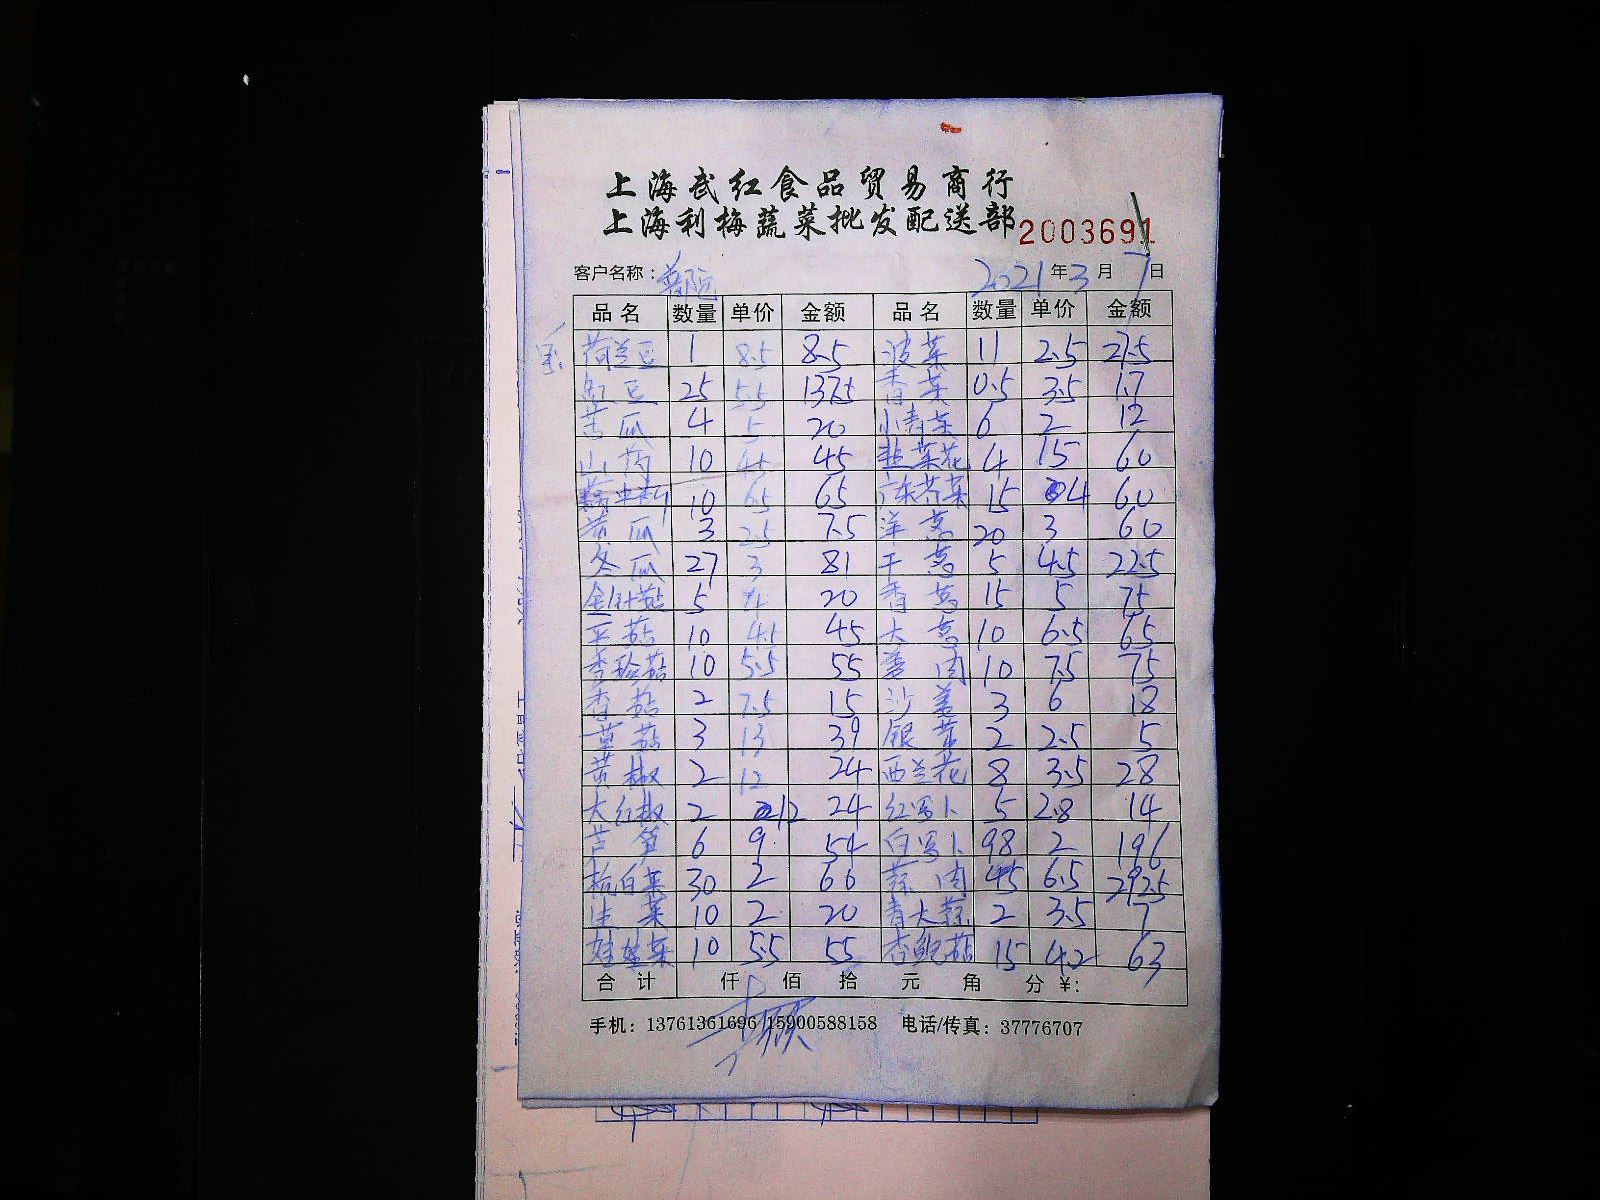 上海武红食品贸易商行
上海利梅蔬菜批发配送部 2003691
客户名称： 2021年3月7日
品名 数量 单价 金额 品名 数量 单价 金额
荷兰豆 1 8.5 8.5 波菜 11 2.5 27.5
豆 25 5.5 137.5 香菜 0.5 3.5 1.7
苦瓜 4 5 20 小青菜 6 2 12
山药 10 4.5 45 韭菜花 4 15 60
10 6.5 65 广东芥菜 15 4 60
黄瓜 3 2.5 7.5 洋葱 20 3 60
冬瓜 27 3 81 干葱 5 4.5 22.5
金针菇 5 4 20 香葱 15 5 75
平菇 10 4.5 45 大葱 10 6.5 65
秀珍菇 10 5.5 55 姜肉 10 7.5 75
香菇 2 7.5 15 沙姜 3 6 18
草菇 3 13 39 银芽 2 2.5 5
黄椒 2 12 24 西兰花 8 3.5 28
大红椒 2 12 24 红罗卜 5 2.8 14
芦笋 6 9 54 白罗卜 98 2 196
杭白菜 30 2 60 蒜肉 45 6.5 292.5
生菜 10 2 20 青大蒜 2 3.5 7
娃娃菜 10 5.5 55 杏鲍菇 15 4.2 63
合计 仟 佰 拾 元 角 分 ￥:
手机：13761361696 15900588158 电话/传真：37776707